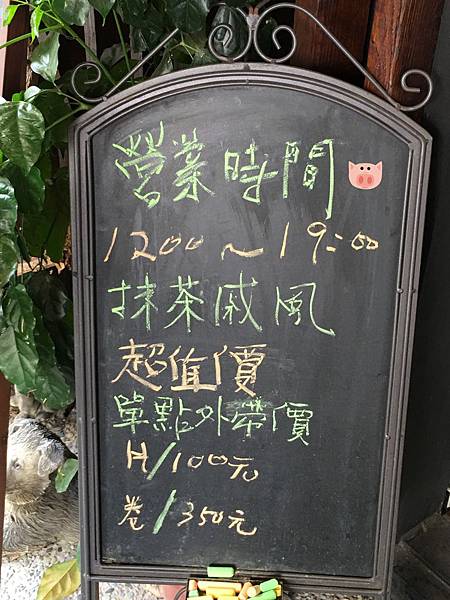 營業時間
1200~19:00
抹茶戚風
超值價
單點外帶價
H/100元
卷/350元